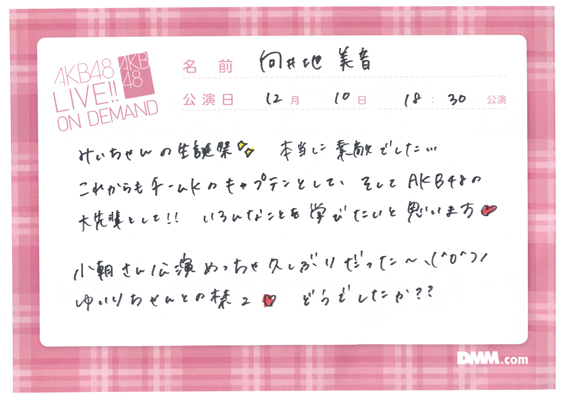 AKB48
LIVE!!
ON DEMAND
AKB
48
名前 向井地 美音
公演日 12月 10日 18:30 公演
みいちゃんの生誕祭 本当に素敵でした…
これからもチームKのキャプテンとして、そしてAKB48の
大先輩として!! いろんなことを学びたいと思います
小嶋さん公演めっちゃ久しぶりだった〜、(^o^)ノ
ゆいりちゃんとの禁2 どうでしたか??
DMM.com